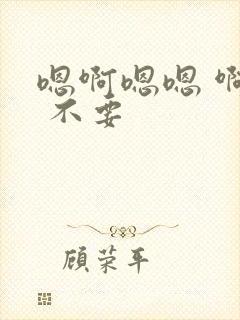 嗯啊嗯嗯 啊
不要
顾荣平